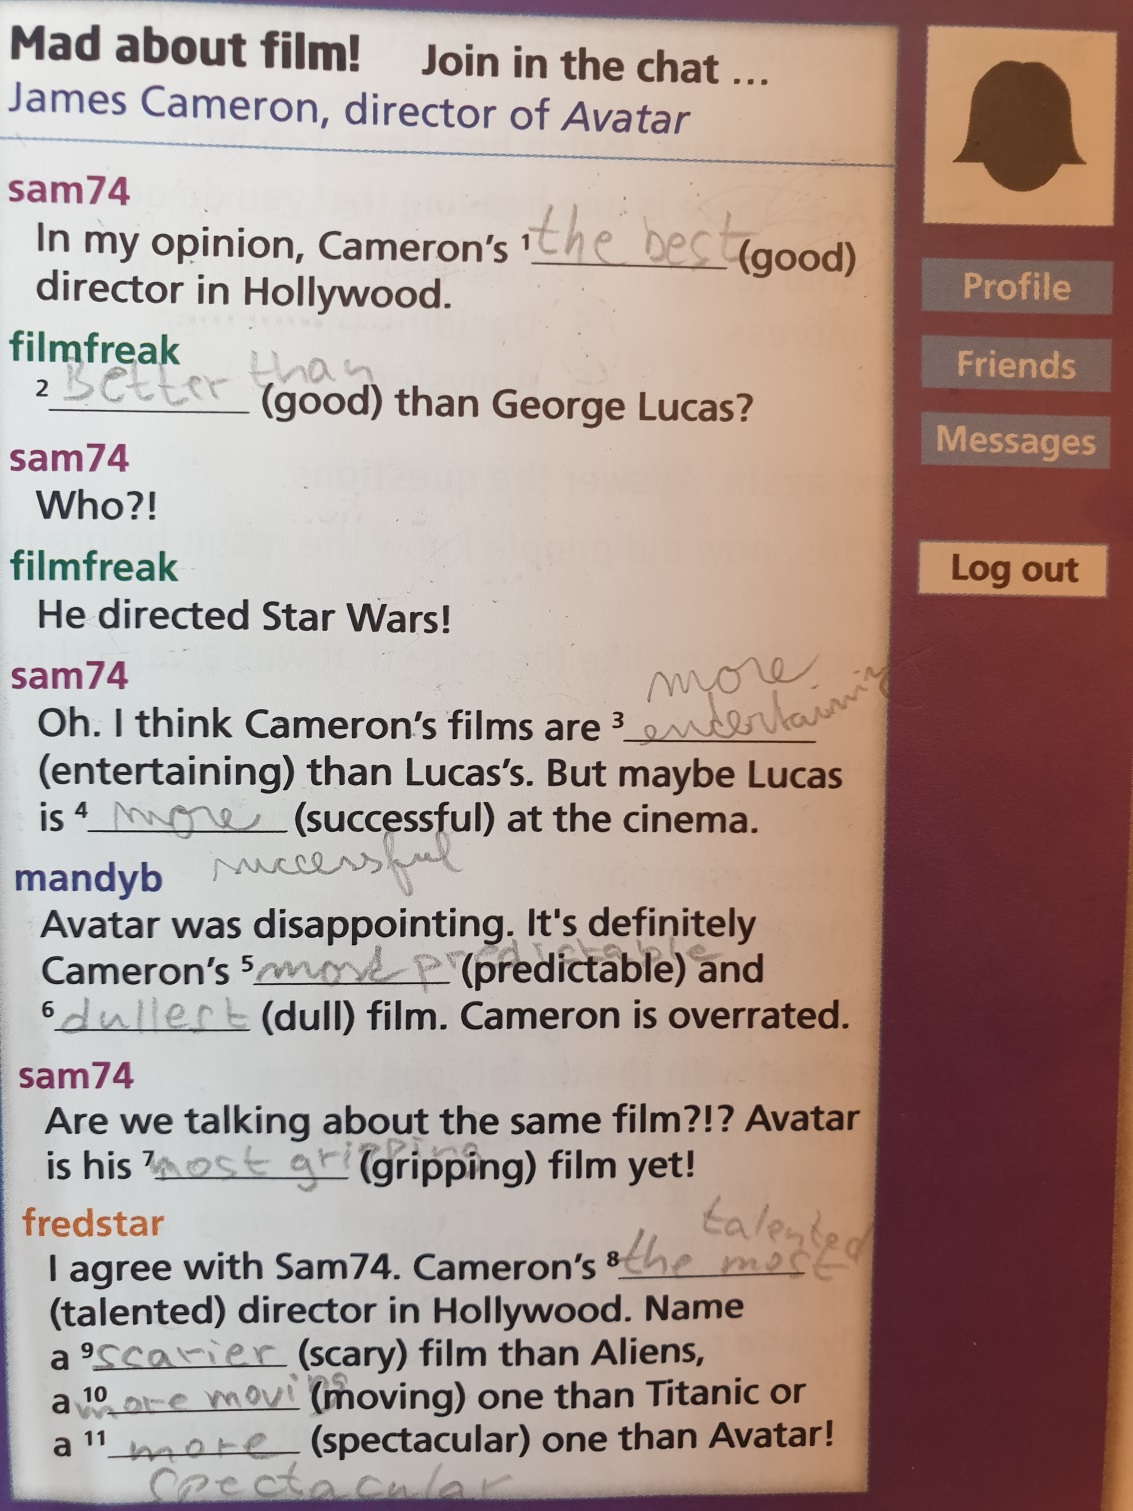 Mad about film! Join in the chat ...
James Cameron, director of Avatar
sam74
In my opinion, Cameron's 1 the best (good)
director in Hollywood.
filmfreak
2 Better than (good) than George Lucas?
sam74
Who?!
filmfreak
He directed Star Wars!
sam74
Oh. I think Cameron's films are 3 more entertaining
(entertaining) than Lucas's. But maybe Lucas
is 4 more successful (successful) at the cinema.
mandyb
Avatar was disappointing. It's definitely
Cameron's 5 most predictable (predictable) and
6 dullest (dull) film. Cameron is overrated.
sam74
Are we talking about the same film?!? Avatar
is his 7 most gripping (gripping) film yet!
fredstar
I agree with Sam74. Cameron's 8 the most talented
(talented) director in Hollywood. Name
a 9 scarier (scary) film than Aliens,
a 10 more moving (moving) one than Titanic or
a 11 more spectacular (spectacular) one than Avatar!
Profile
Friends
Messages
Log out